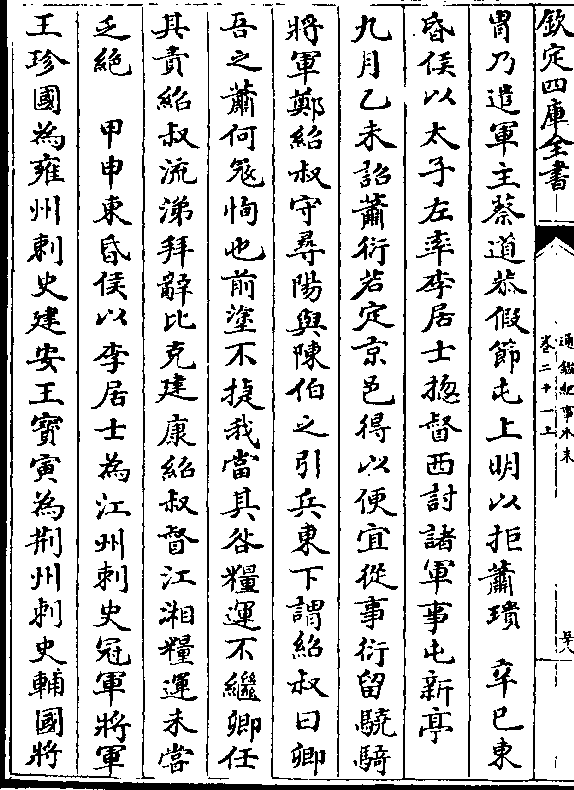 欽定四庫全書
通鑑紀事本末
卷二十一上
胄乃遣軍主蔡道恭假節屯上明以拒蕭璝　辛巳東
昏侯以太子左率李居士揔督西討諸軍事屯新亭
九月乙未詔蕭衍若定京邑得以便宜從事衍留驍騎
將軍鄭紹叔守尋陽與陳伯之引兵東下謂紹叔曰卿
吾之蕭何寇恂也前塗不捷我當其咎糧運不繼卿任
其責紹叔流涕拜辭比克建康紹叔督江湘糧運未當
乏絶　甲申東昏侯以李居士為江州刺史冠軍將軍
王珍國為雍州刺史建安王寶寅為荆州刺史輔國將